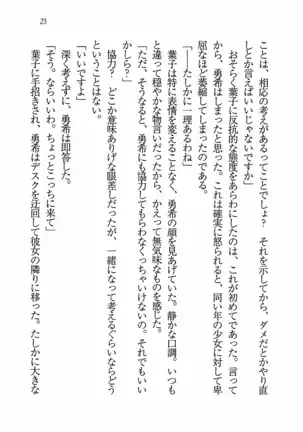 23
ことは、相応の考えがあるってことでしょ？　それを示してから、ダメだとかやり直
しとか言えばいいじゃないですか」
　しまった、勇希はしまったと思った。
　おそらく葉子に反抗的な態度をあらわにしたのは、これが初めてであった。言って
から、勇希はしまったと思った。これは確実に怒られると、同い年の少女に対して卑
屈なほど萎縮してしまったのである。
「――たしかに一理あるわね」
　葉子は特に表情を変えることなく、勇希の顔を見あげていた。静かな口調。いつも
と違って穏やかな物言いだったから、かえって無気味なものを感じた。
「ただ、そうなると、勇希にも協力してもらわなくっちゃいけないもの。それでもいい
かしら？」
　協力？　どこか意味ありげな眼差しだったが、一緒になって考えるぐらいならどう
ということはない。
「いいですよ」
　深く考えずに、勇希は即答した。
「そう。ならいいわ。ちょっとこっちに来て」
　葉子に手招きされ、勇希はデスクを迂回して彼女の隣りに移った。たしかに大きな